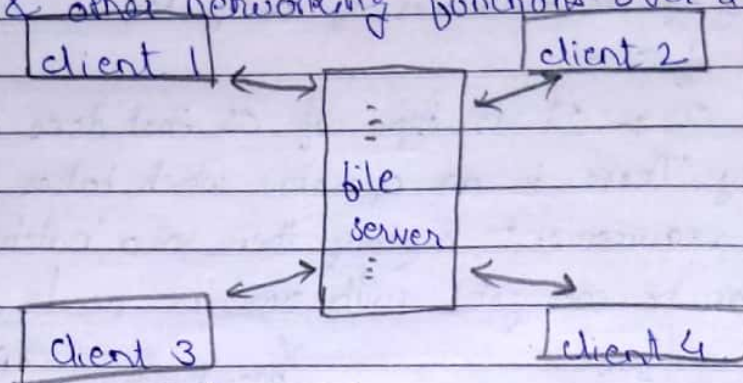 & other networking functions over a
client 1 client 2
file
server
client 3 client 4